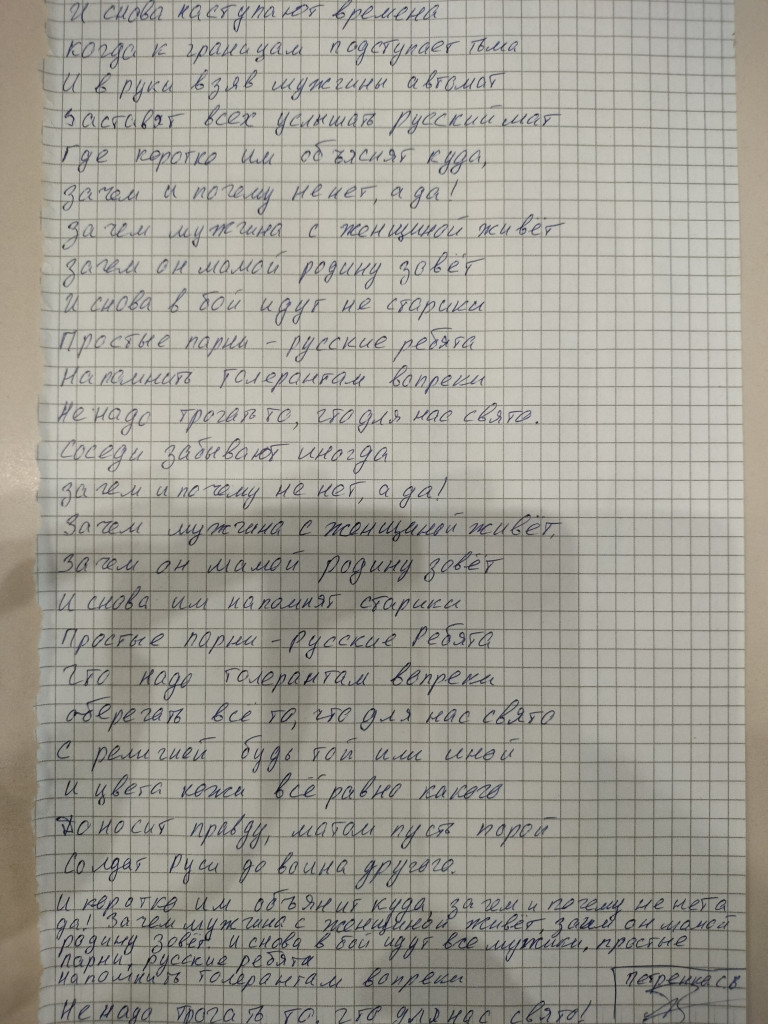 И снова наступают времена
когда к границам подступает тьма
И в руки взяв мужчины автомат
Заставят всех услышать русский мат
Где коротко им объяснят куда,
зачем и почему не нет, а да!
Зачем мужчина с женщиной живёт
зачем он мамой родину зовёт
И снова в бой идут не старики
Простые парни - русские ребята
Напомнить толерантам вопреки
Не надо трогать то, что для нас свято.
Соседи забывают иногда
зачем и почему не нет, а да!
Зачем мужчина с женщиной живёт,
Зачем он мамой родину зовёт
И снова им напомнят старики
Простые парни - Русские Ребята
Что надо толерантам вопреки
оберегать всё то, что для нас свято
С религией будь той или иной
и цвета кожи всё равно какого
Доносит правду, матом пусть порой
Солдат Руси до воина другого.
И коротко им объянит куда, зачем и почему не нет а
да! Зачем мужчина с женщиной живёт, зачем он мамой
родину зовёт и снова в бой идут все мужики, простые
парни, русские ребята
напомнить толерантам вопреки
Не надо трогать то, что для нас свято!
Петренка С.В